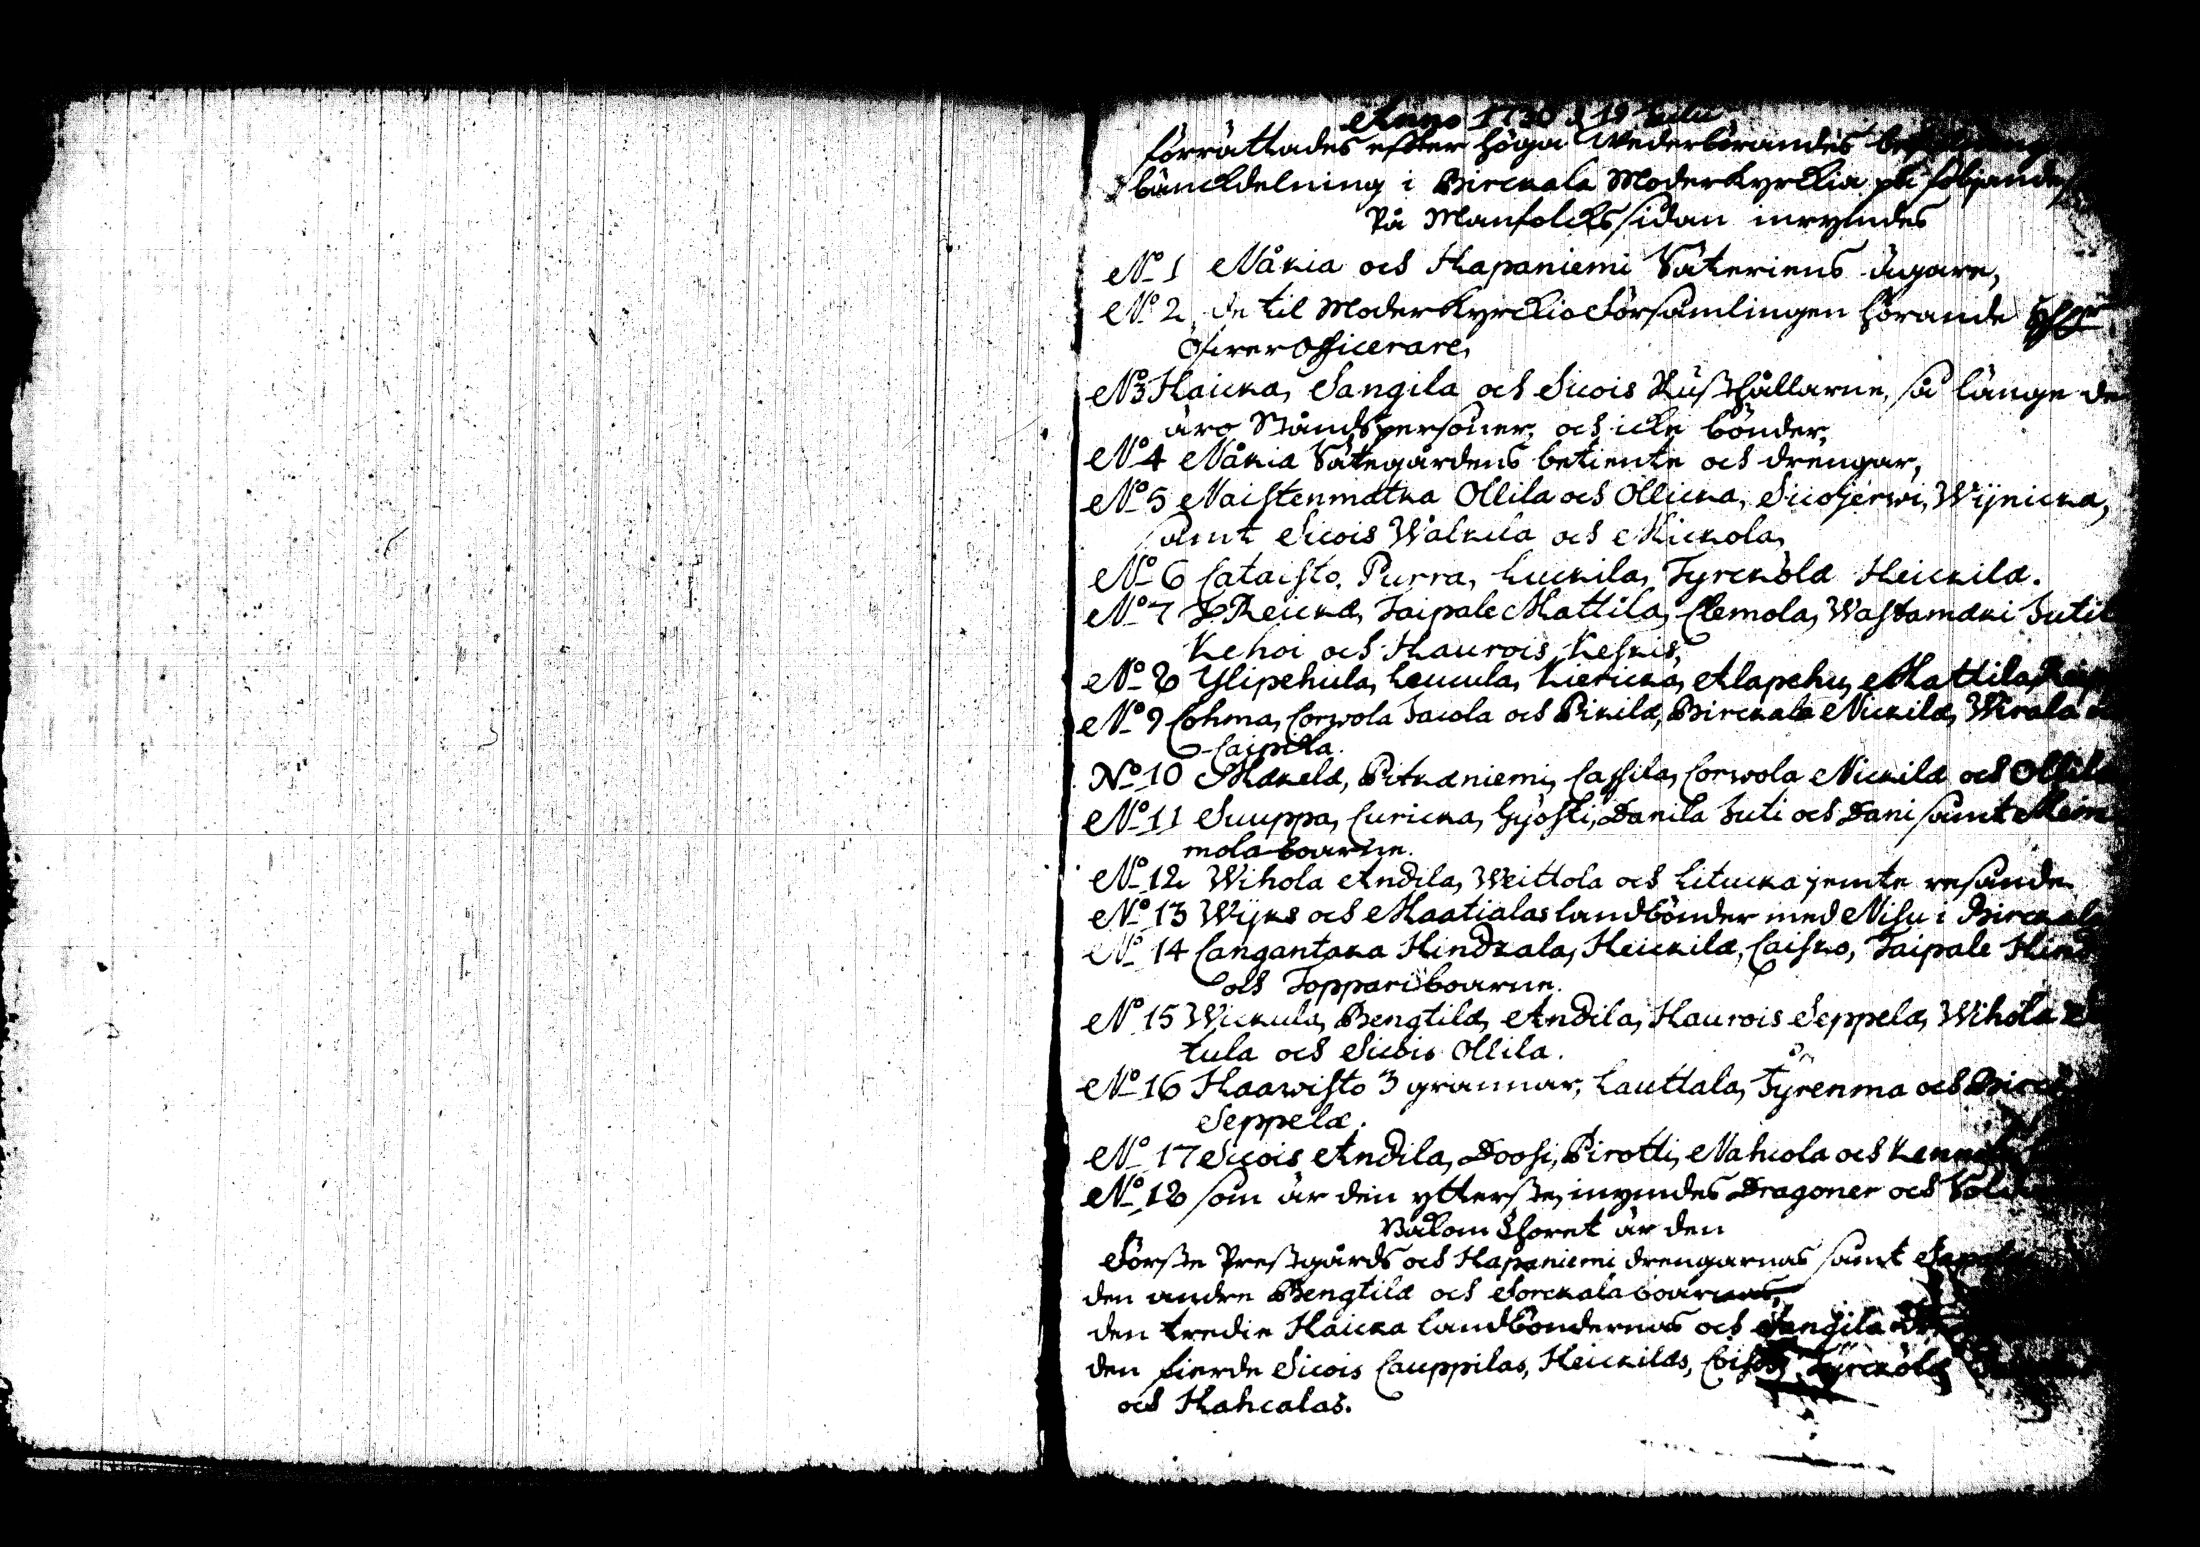 Anno 1730 d 19 Julii
förrättades efter höga wederbörandes
bänckdelning i Birckala Moderkyrckia på följande
På Manfolcks sidan inrymdes
No 1 Nåkia och Hapaniemi Säteriens ägare,
No 2 de til Moderkyrckio Församlingen hörande
Öfwer Officerare,
No 3 Haicka, Sangila och Sicois Rusthållarne, så länge de
äro Ståndspersoner, och icke bönder,
No 4 Nåkia Sätegårdens betiente och drengar,
No 5 Naistenmatka Ollila och Ollicka, Sicojerwi, Wijnicka,
samt Sicois Walkila och Nickola,
No 6 Cataisto, Purra, Luckila, Tyrckölä Heickilä.
No 7 Reickä, Taipale Mattila, Clemola, Wastamäki Juti
Kehoi och Haurois Keskis,
No 8 Ylipehula, Leucula, Kiericka, Alapehu, Mattila,
No 9 Lohma, Corwola Jacola och Pikilä, Birckala Nickilä, Wirala
Caipila.
No 10 Mäkelä, Pitkäniemi, Cassila, Corwola Nickilä och Ollila
No 11 Suuppa, Curicka, Gyösti, Danila Juti och Dani samt Hein
mola boarne.
No 12 Wihola Andila, Weittola och Litucka jemte resande
No 13 Wijks och Maatialas landbönder med Nisu i Birckala
No 14 Cangantaka Hindkala, Heickilä, Caisko, Taipale Hind
och Toppari boarne.
No 15 Wickula, Bengtilä, Andila, Haurois Seppelä, Wihola
tula och Sicois Ollila.
No 16 Haawisto 3 grannar, Lauttala, Tyrenmä och Birck
Seppelä.
No 17 Sicois Andila, Doosi, Pirotti, Nahcola och
No 18 som är den ytterste, inrymdes Dragoner och
Bakom Choret är den
Förste Prestgårds och Hapaniemi drengarnas samt
den andre Bengtilä och Sorckala boarnas,
den tredie Haicka landböndernas och Sangila
den fierde Sicois Cauppilas, Heickiläs, Tyrckölä
och Hahcalas.